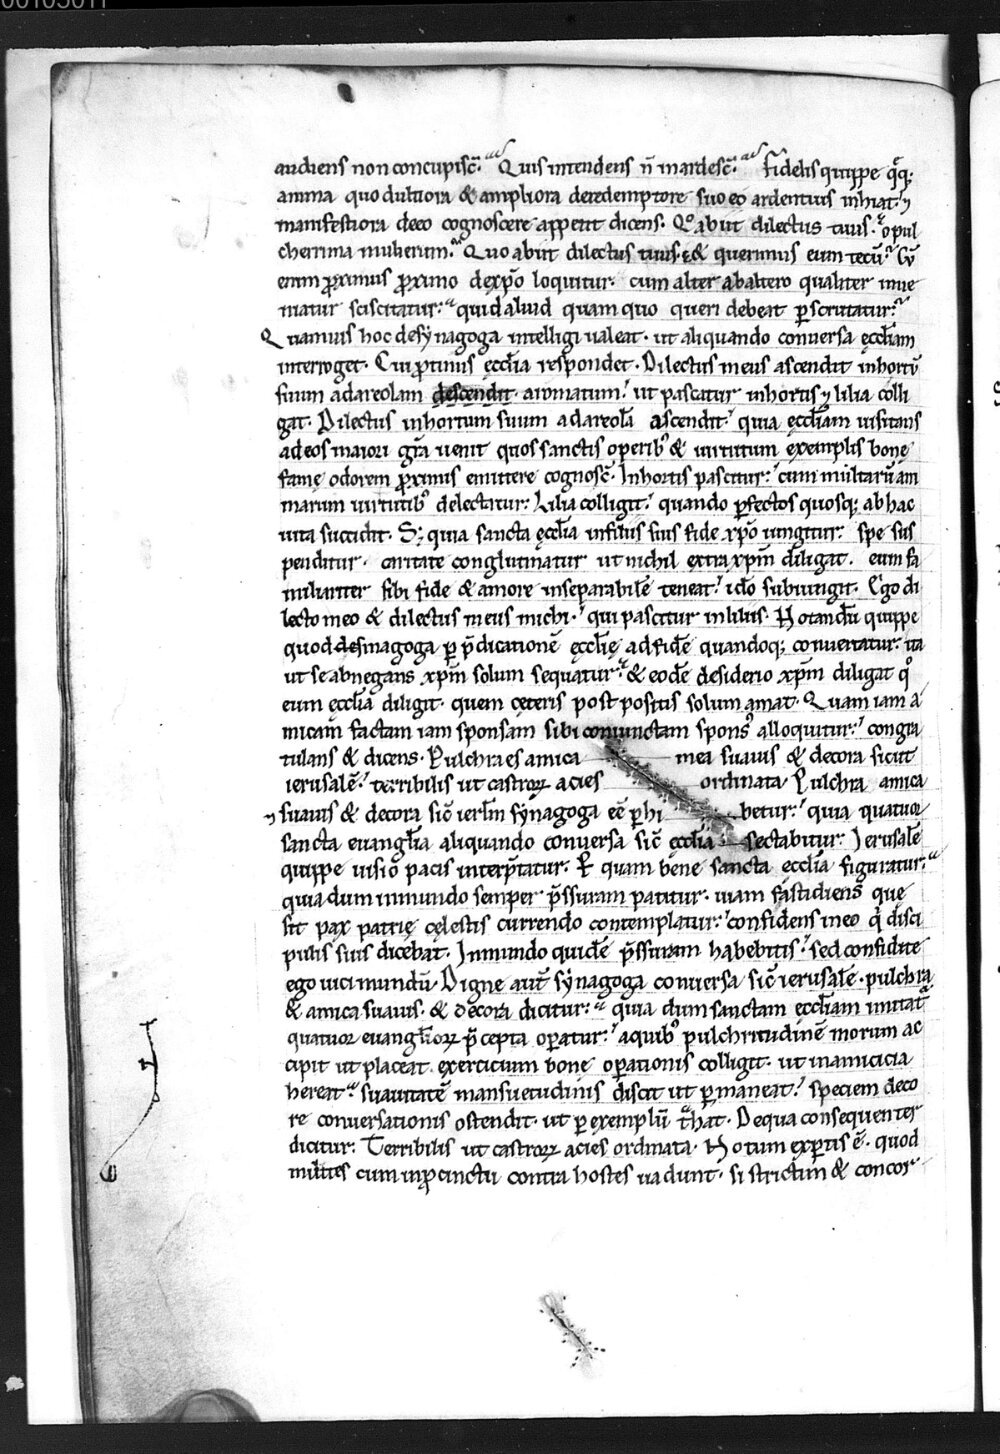 audiens non concupisc̄. Quis intendens n̄ inardesc̄. Fidelis quippe q̄q;
anima quo dultiora & ampliora deredemptore suo eo ardentius inhiat. ⁊
manifestiora deeo cognoscere appetit dicens. Qͦ abiit dilectus tuus. o pul
cherrima mulierum. Quo abiit dilectus tuus. & queremus eum tecū. Cū
enim p̱ximus p̱ximo dexp̄o loquitur. cum alter abaltero qualiter inue
niatur sciscitatur. quid aliud quam quo queri debeat p̱scrutatur.
Quamuis hoc desynagoga intelligi ualeat. ut aliquando conuersa ęccl̄iam
interroget. Cui p̱tinus ęccl̄ia respondet. Dilectus meus ascendit inhortū
suum adareolam descendit aromatum. ut pascatur inhortis ⁊ lilia colli
gat. Dilectus inhortum suum adareolā ascendit. quia ęccl̄iam uisitans
adeos maiori gr̄a uenit quos sanctis operib; & uirtutum exemplis bonę
famę odorem p̱ximis emittere cognosc̄. Inhortis pascitur. cum multarū am
marum uirtutib; delectatur. Lilia colligit. quando p̱fectos quosq; abhac
uita succidit. S; quia sancta ęccl̄ia infilus suis fide xp̄o iungitur. spe sus
penditur. caritate conglutinatur ut nichil extra xp̄m diligat. eum fa
miliariter sibi fide & amore inseparabilē teneat. ido subiungit. Ego di
lecto meo & dilectus meus michi. qui pascitur inliliis. Notandū quippe
quod desinagoga p̱ p̄dicationē ęccl̄ię adfidē quandoq; conuertatur. ita
ut se abnegans xp̄m solum sequatur. & eodē desiderio xp̄m diligat qͦ
eum ęccl̄ia diligit. quem ceteris post positis solum amat. Quam iam a
micam factam iam sponsam sibi coniunctam spons᷒ alloquitur. congra
tulans & dicens. Pulchra es amica mea suauis & decora sicut
ierusalē. terribilis ut castroꝝ acies ordinata. Pulchra amica
⁊ suauis & decora sic̄ ierl̄m synagoga eē p̱hi betur. quia quatuor
sancta euangl̄ia aliquando conuersa sic̄ ęccl̄ia sectabitur. Ierusalē
quippe uisio pacis interp̄tatur. Et quam bene sancta ęccl̄ia figuratur.
quia dum inmundo semper p̄ssuram patitur. uiam fastidiens que
sit pax patrię cęlestis currendo contemplatur. confidens ineo q̄ disci
pulis suis dicebat. Inmundo quidē p̄ssuram habebitis. sed confidite
ego uici mundū. Digne aut̄ synagoga conuersa sic̄ ierusalē. pulchra
& amica suauis. & decora dicitur. quia dum sanctam eccl̄iam imitat̄
quatuor euangl̄ioꝝ p̄cepta op̱atur. aquib; pulchritudinē morum ac
cipit ut placeat. exercicium bone op̱ationis colligit. ut inamicicia
hereat. suauitatē mansuetudinis discit ut p̱maneat. speciem deco
re conuersationis ostendit. ut p̱ exemplū t̄hat. Dequa consequenter
dicitur. Terribilis ut castroꝝ acies ordinata. Notum exp̱tis ē. quod
milites cum inp̱cinctu contra hostes uadunt. si strictim & concor